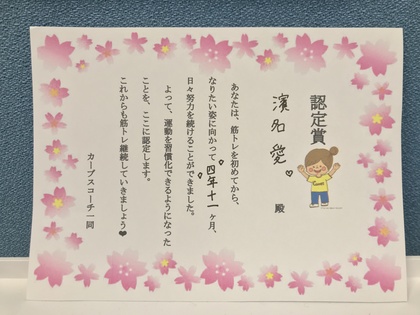 認定賞
濱名愛♡ 殿
あなたは、筋トレを初めてから、
なりたい姿に向かって四年十一ヶ月、
日々努力を続けることができました。
よって、運動を習慣化できるようになった
ことを、ここに認定します。
これからも筋トレ継続していきましょう♥
カーブスコーチ一同